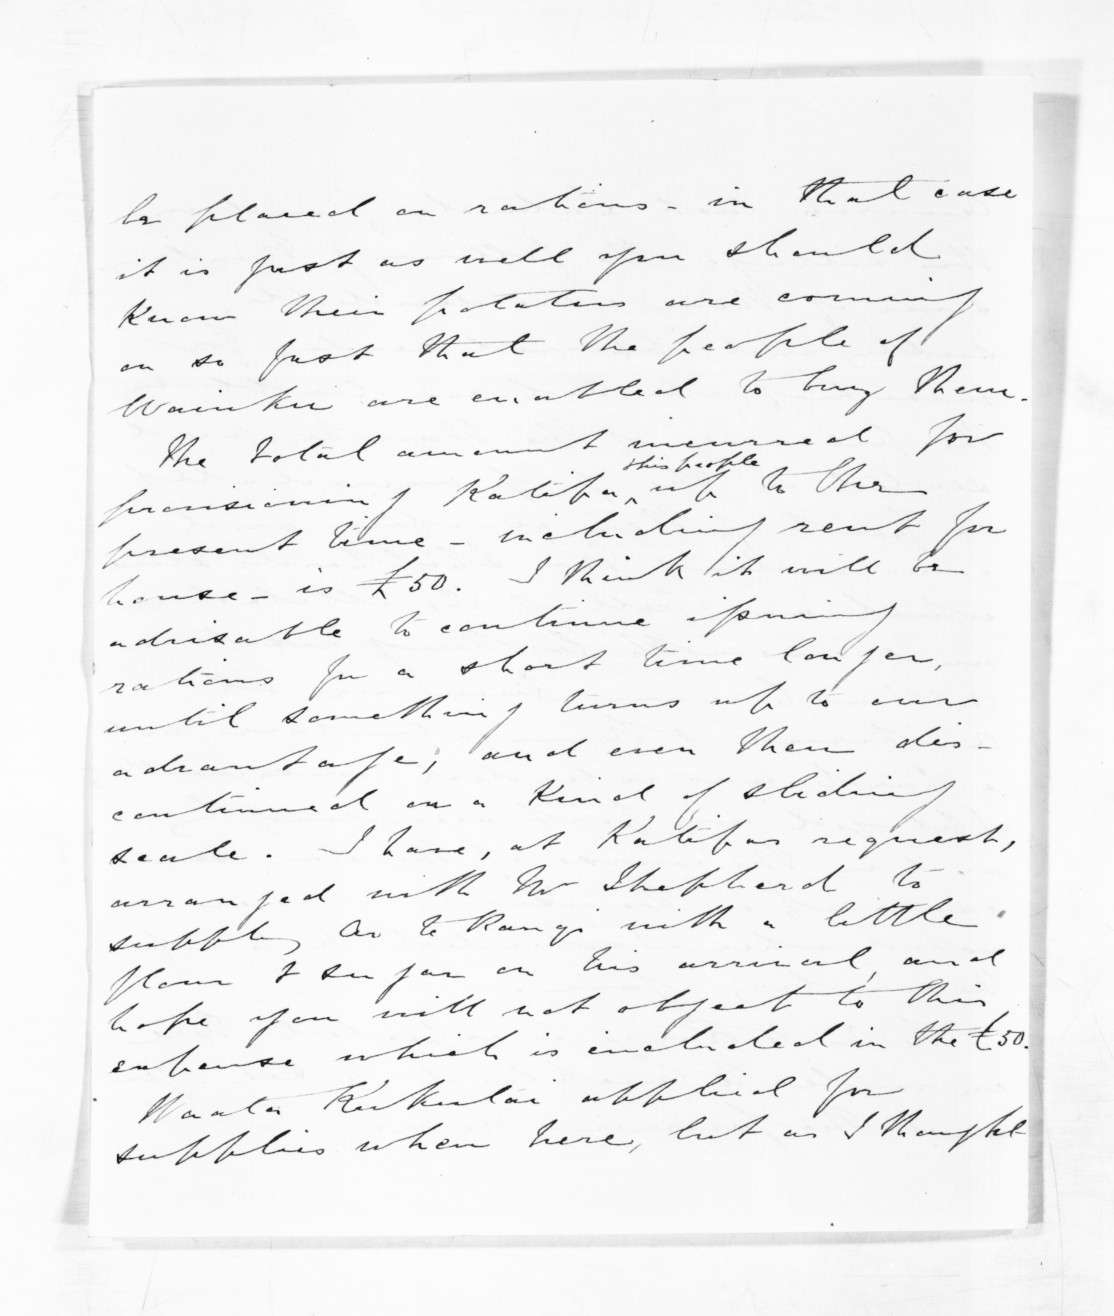 be placed on rations - in that case
it is just as well you should
know their potatoes are coming
on so fast that the people of
Waiuku are enabled to buy them.
The total amount incurred for
provisioning Katipa ^ his people up to the
present time - including rent for
house - is £50. I think it will be
advisable to continue issuing
rations for a short time longer,
until something turns up to our
advantage, and even then dis-
continued on a kind of sliding
scale. I have, at Katipas request,
arranged with Mr Shepherd to
supply Te Rangi with a little
flour & sugar on his arrival, and
hope you will not object to this
expense which is included in the £50.
Waata Kukutai applied for
supplies when here, but as I thought